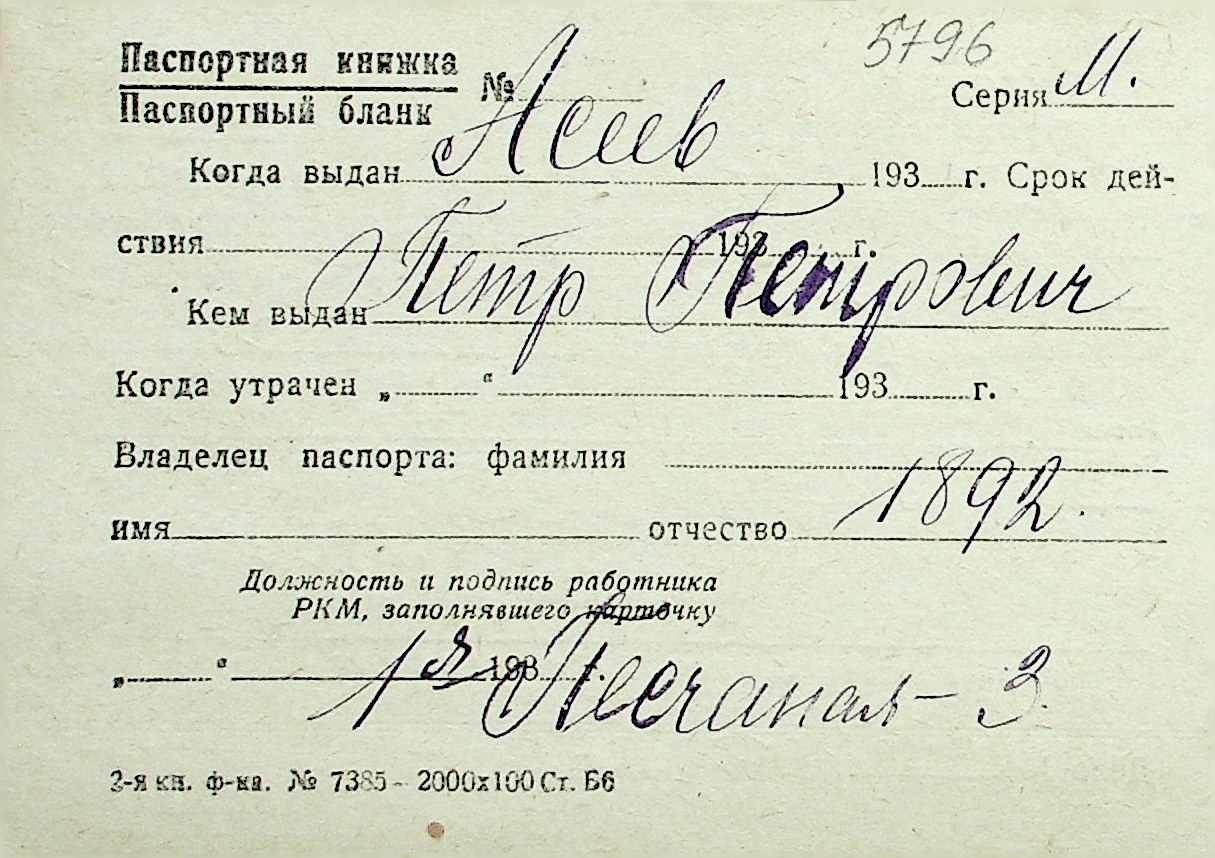 5796
Паспортная книжка
Паспортный бланк № Серия М.
Асеев
Когда выдан 193 г. Срок дей-
ствия 193 г.
Петр Петрович
Кем выдан
Когда утрачен „ “ 193 г.
Владелец паспорта: фамилия
1892.
имя отчество
Должность и подпись работника
РКМ, заполнявшего карточку
„ “ 193 г.
1я Песчаная – 3.
2-я кн. ф-ка. № 7385 - 2000х100 Ст. Б6